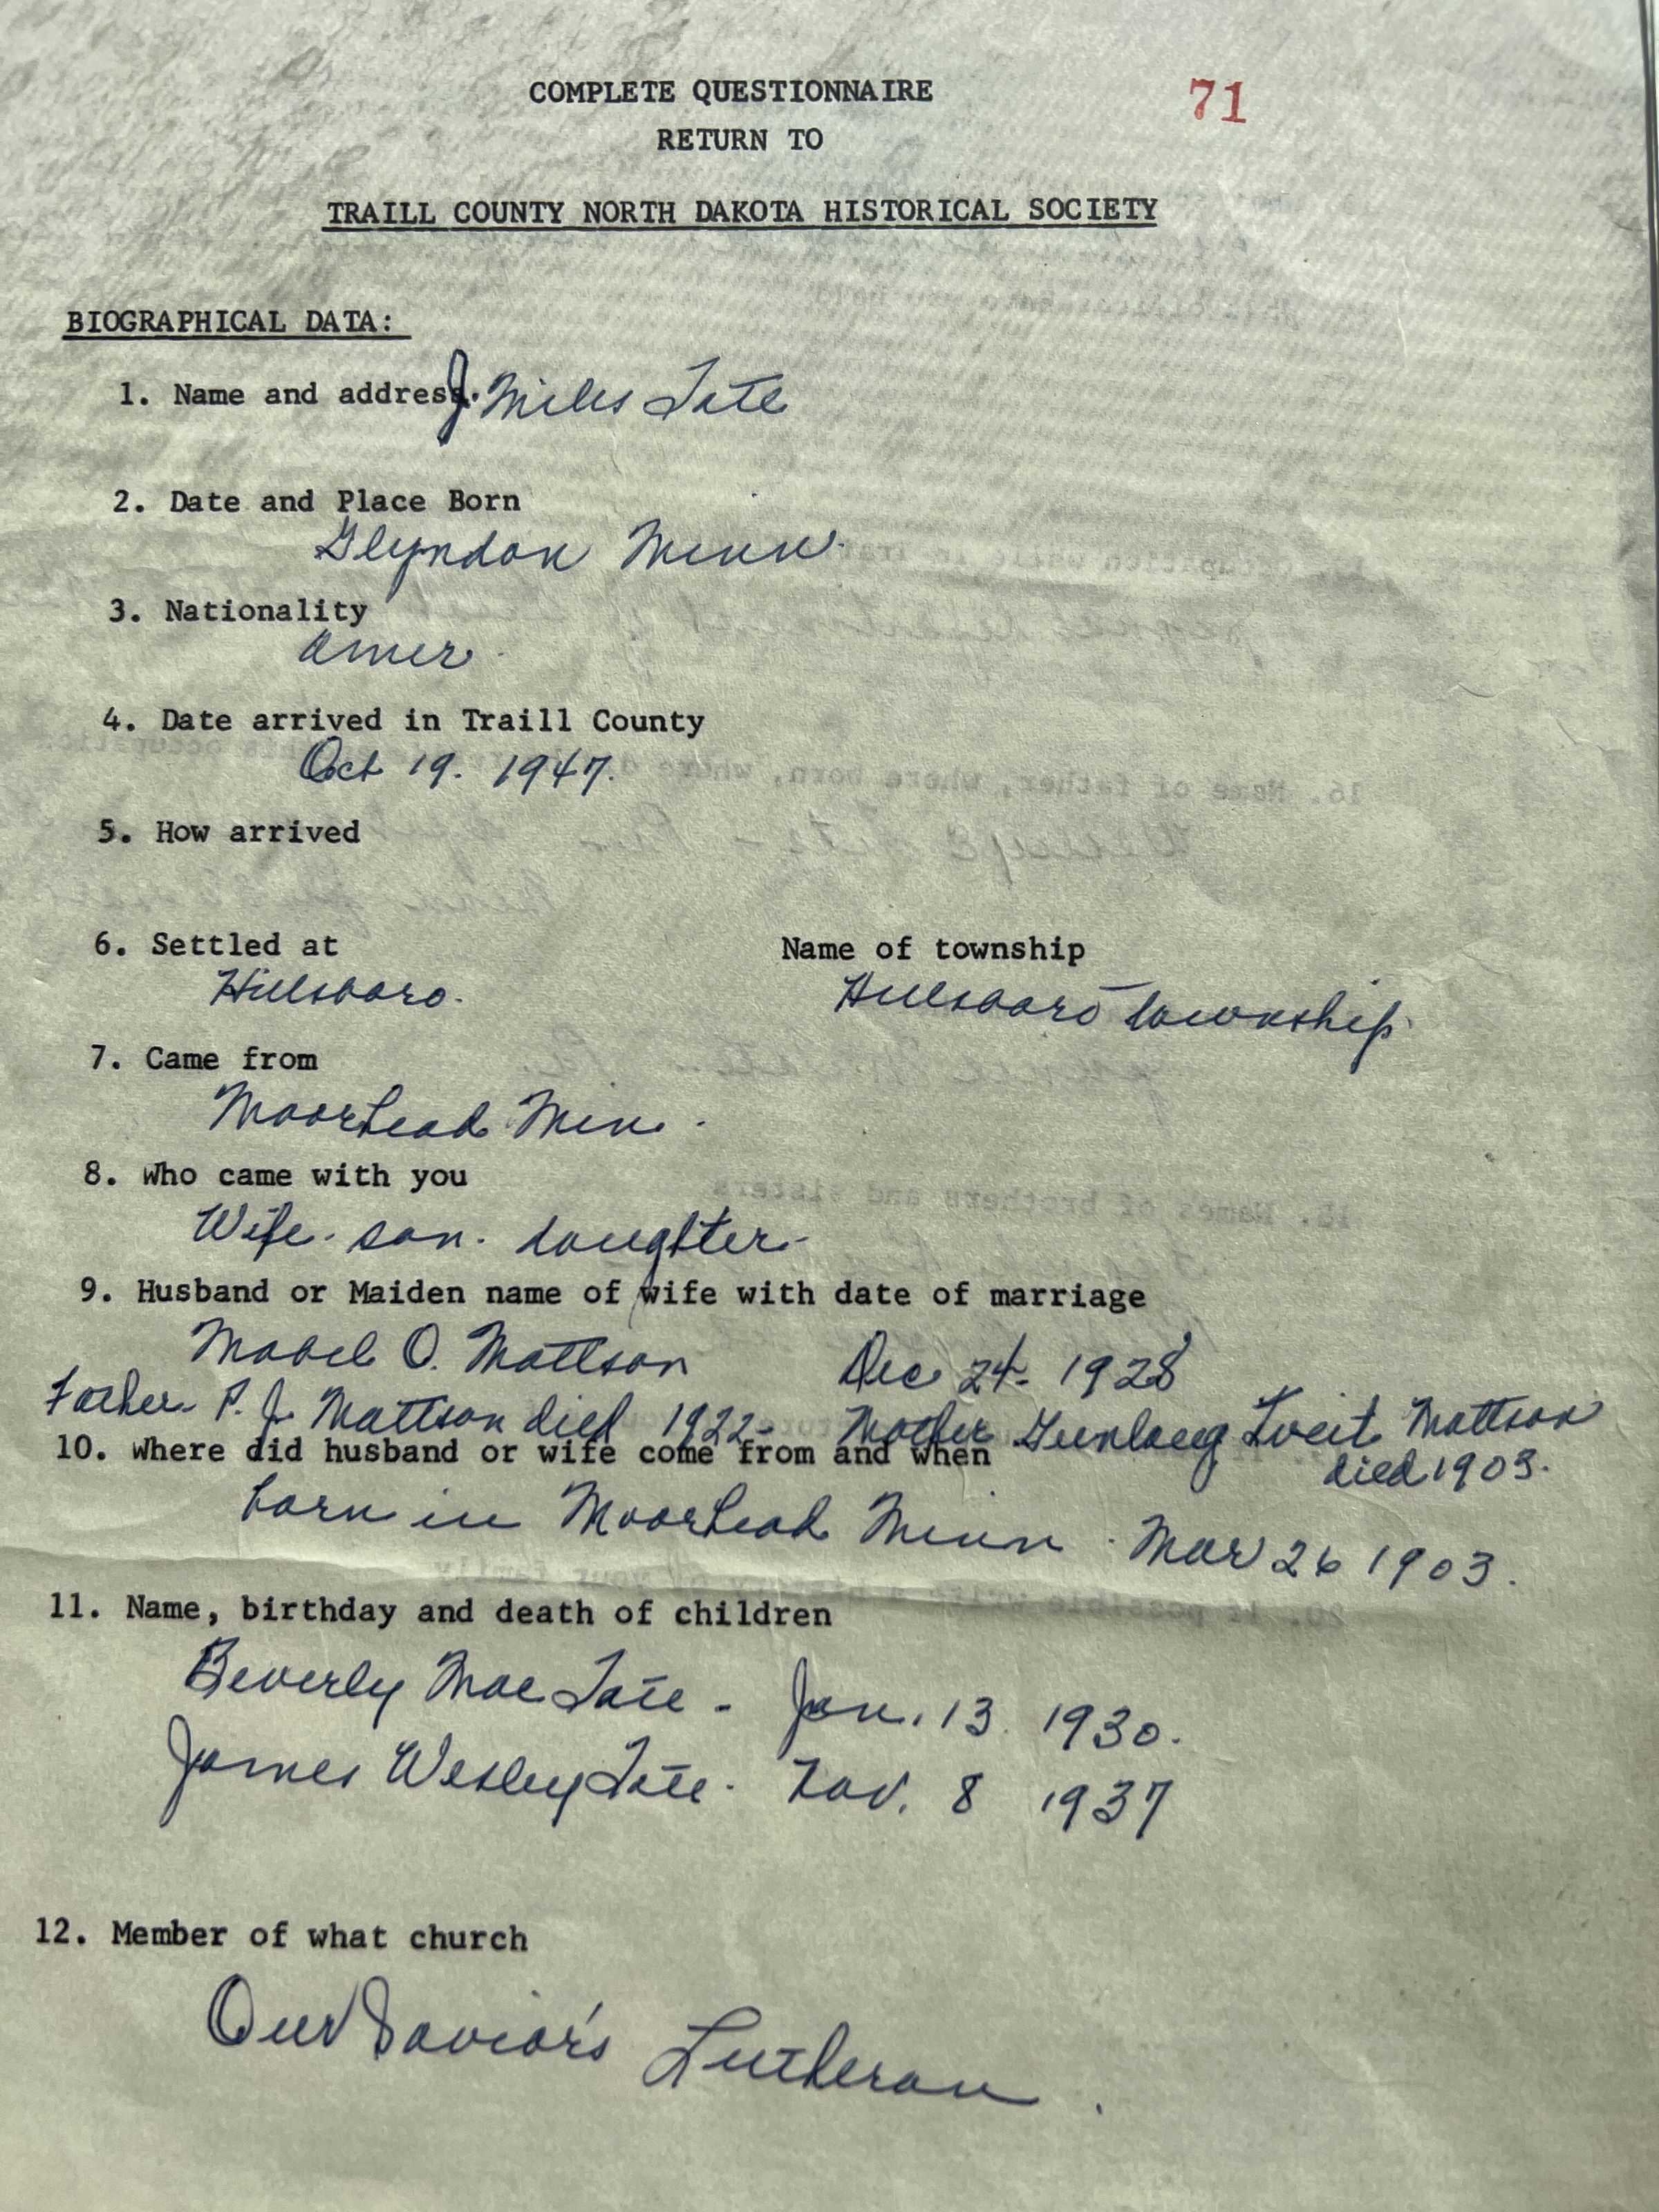 COMPLETE QUESTIONNAIRE 71
RETURN TO
TRAILL COUNTY NORTH DAKOTA HISTORICAL SOCIETY
BIOGRAPHICAL DATA:
1. Name and address. J. Miles Tate
2. Date and Place Born
Glyndon Minn.
3. Nationality
Amer.
4. Date arrived in Traill County
Oct 19. 1947.
5. How arrived
6. Settled at Name of township
Hillsboro. Hillsboro township.
7. Came from
Moorhead Minn.
8. Who came with you
Wife. son. daughter.
9. Husband or Maiden name of wife with date of marriage
Mabel O. Mattson Dec 24. 1928
Father. P. J. Mattson died 1922. Mother Gunlaug Tveit Mattson
died 1903.
10. Where did husband or wife come from and when
born in Moorhead Minn. Mar 26 1903.
11. Name, birthday and death of children
Beverly Mae Tate - Jan. 13. 1930.
James Wesley Tate. Nov. 8 1937
12. Member of what church
Our Savior's Lutheran.